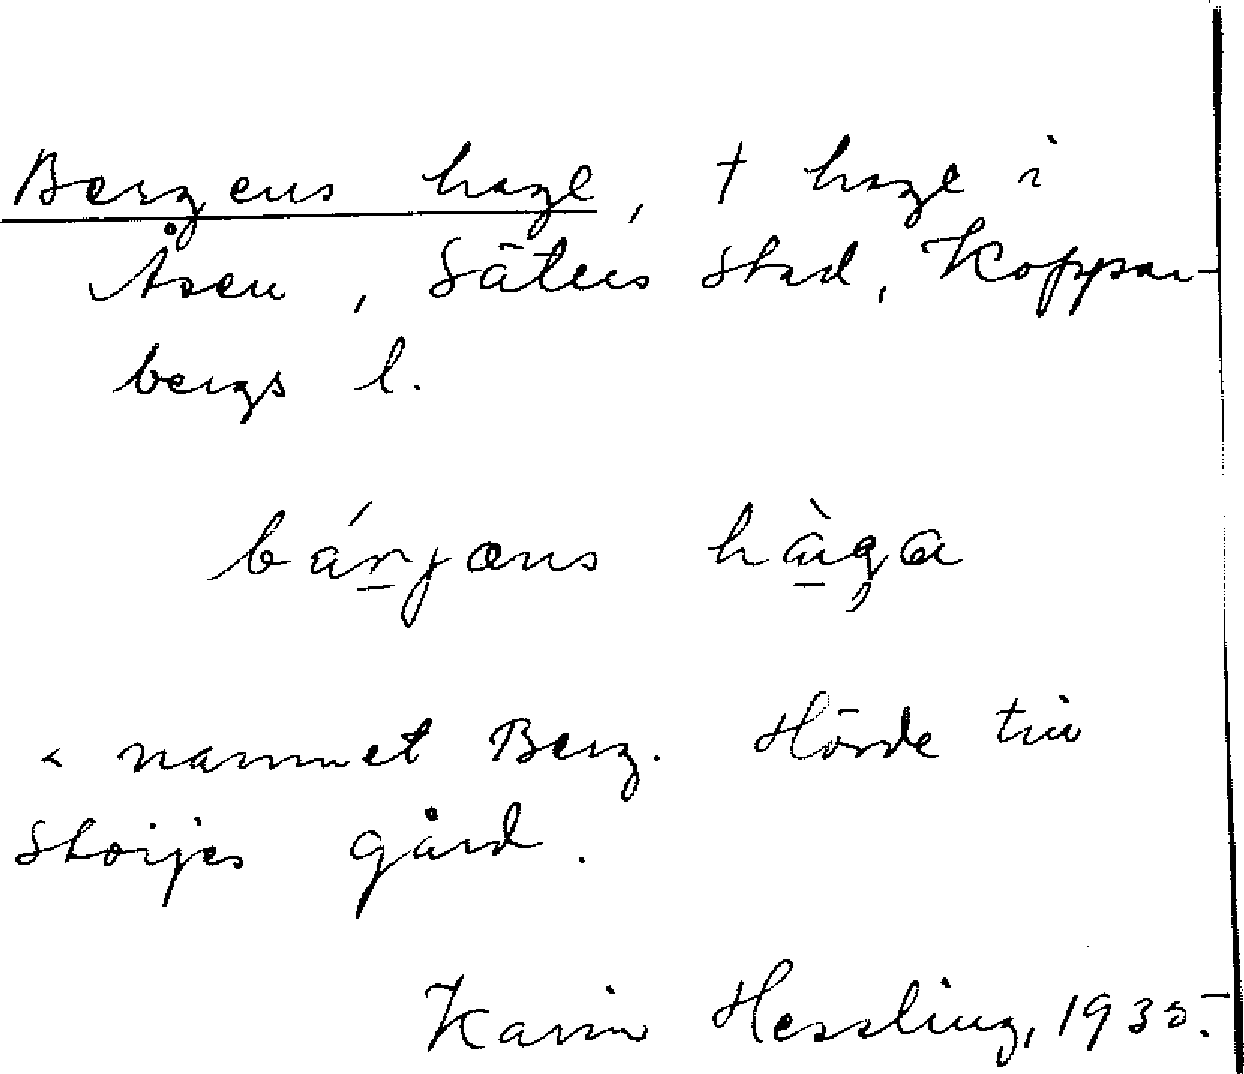 Bergens hage, † hage i
Åsen, Säters stad, Koppar-
bergs l.
bárjans hàga
< namnet Berg. Hörde till
Storjes gård.
Karin Hessling, 1935.